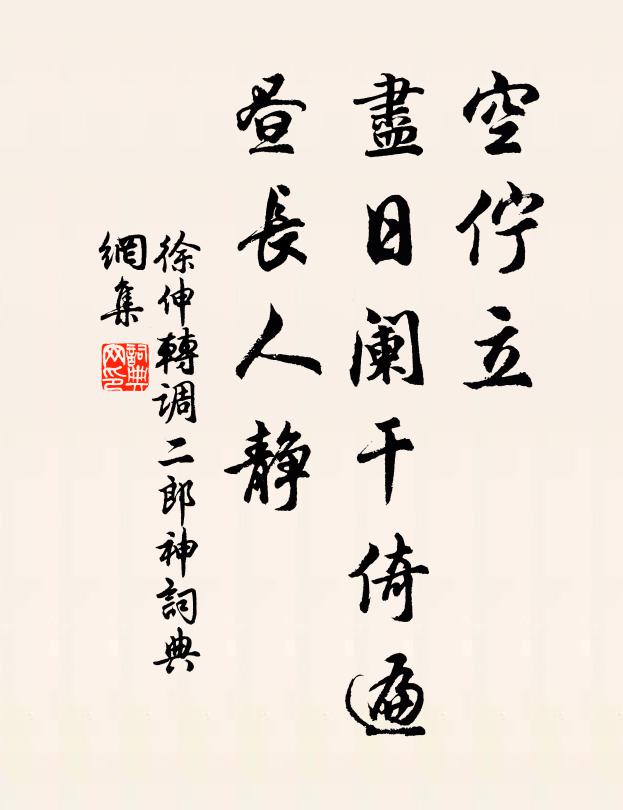 空佇立
盡日阑干倚遍
昼長人静
徐伸轉调二郎神詞典
網集
詞典
网印